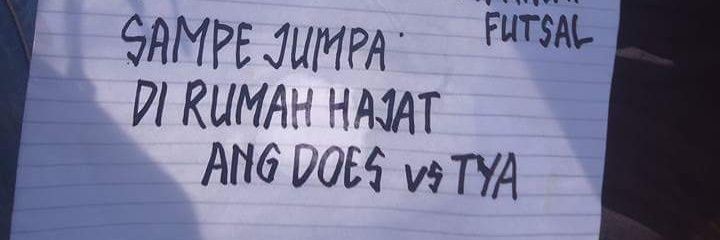 FUTSAL
SAMPE JUMPA
DI RUMAH HAJAT
ANG DOES vs TYA